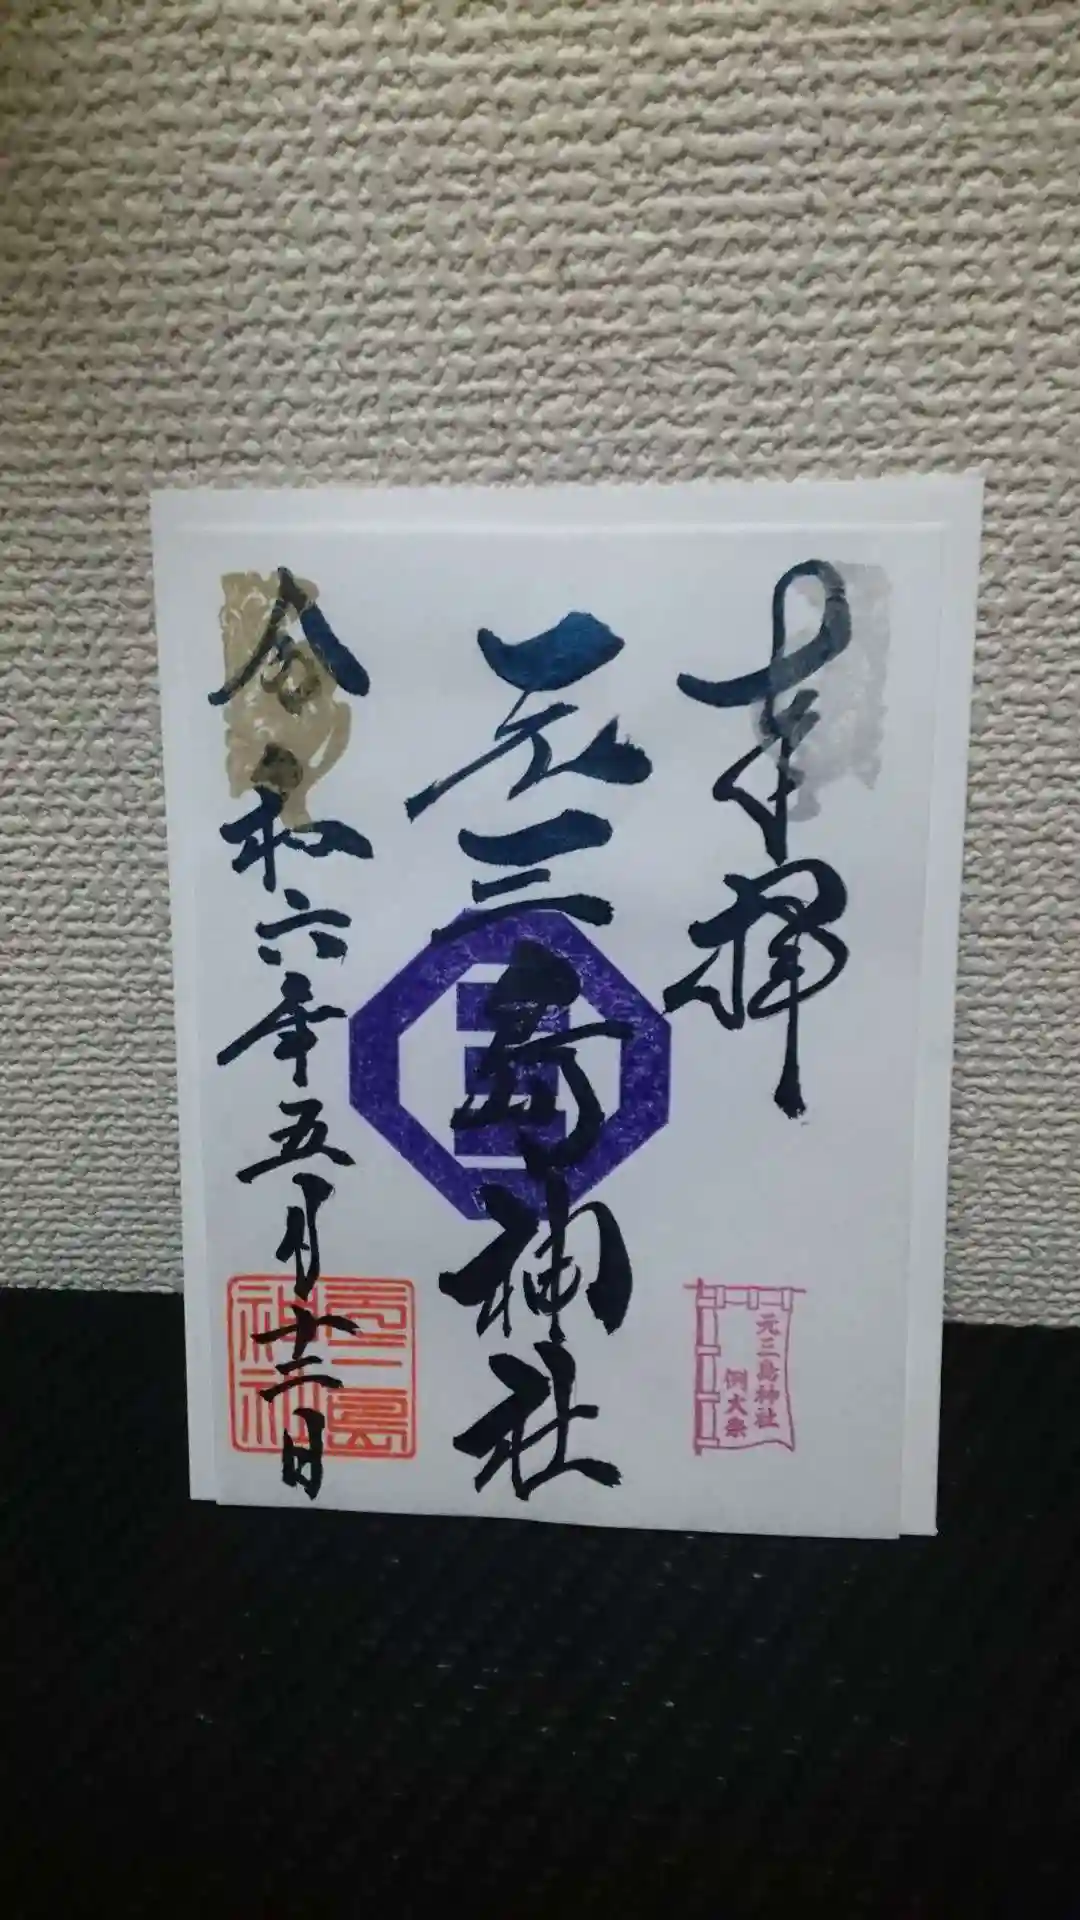 奉拝
元三島神社
令和六年五月十二日
元三島神社
例大祭
元三島
神社